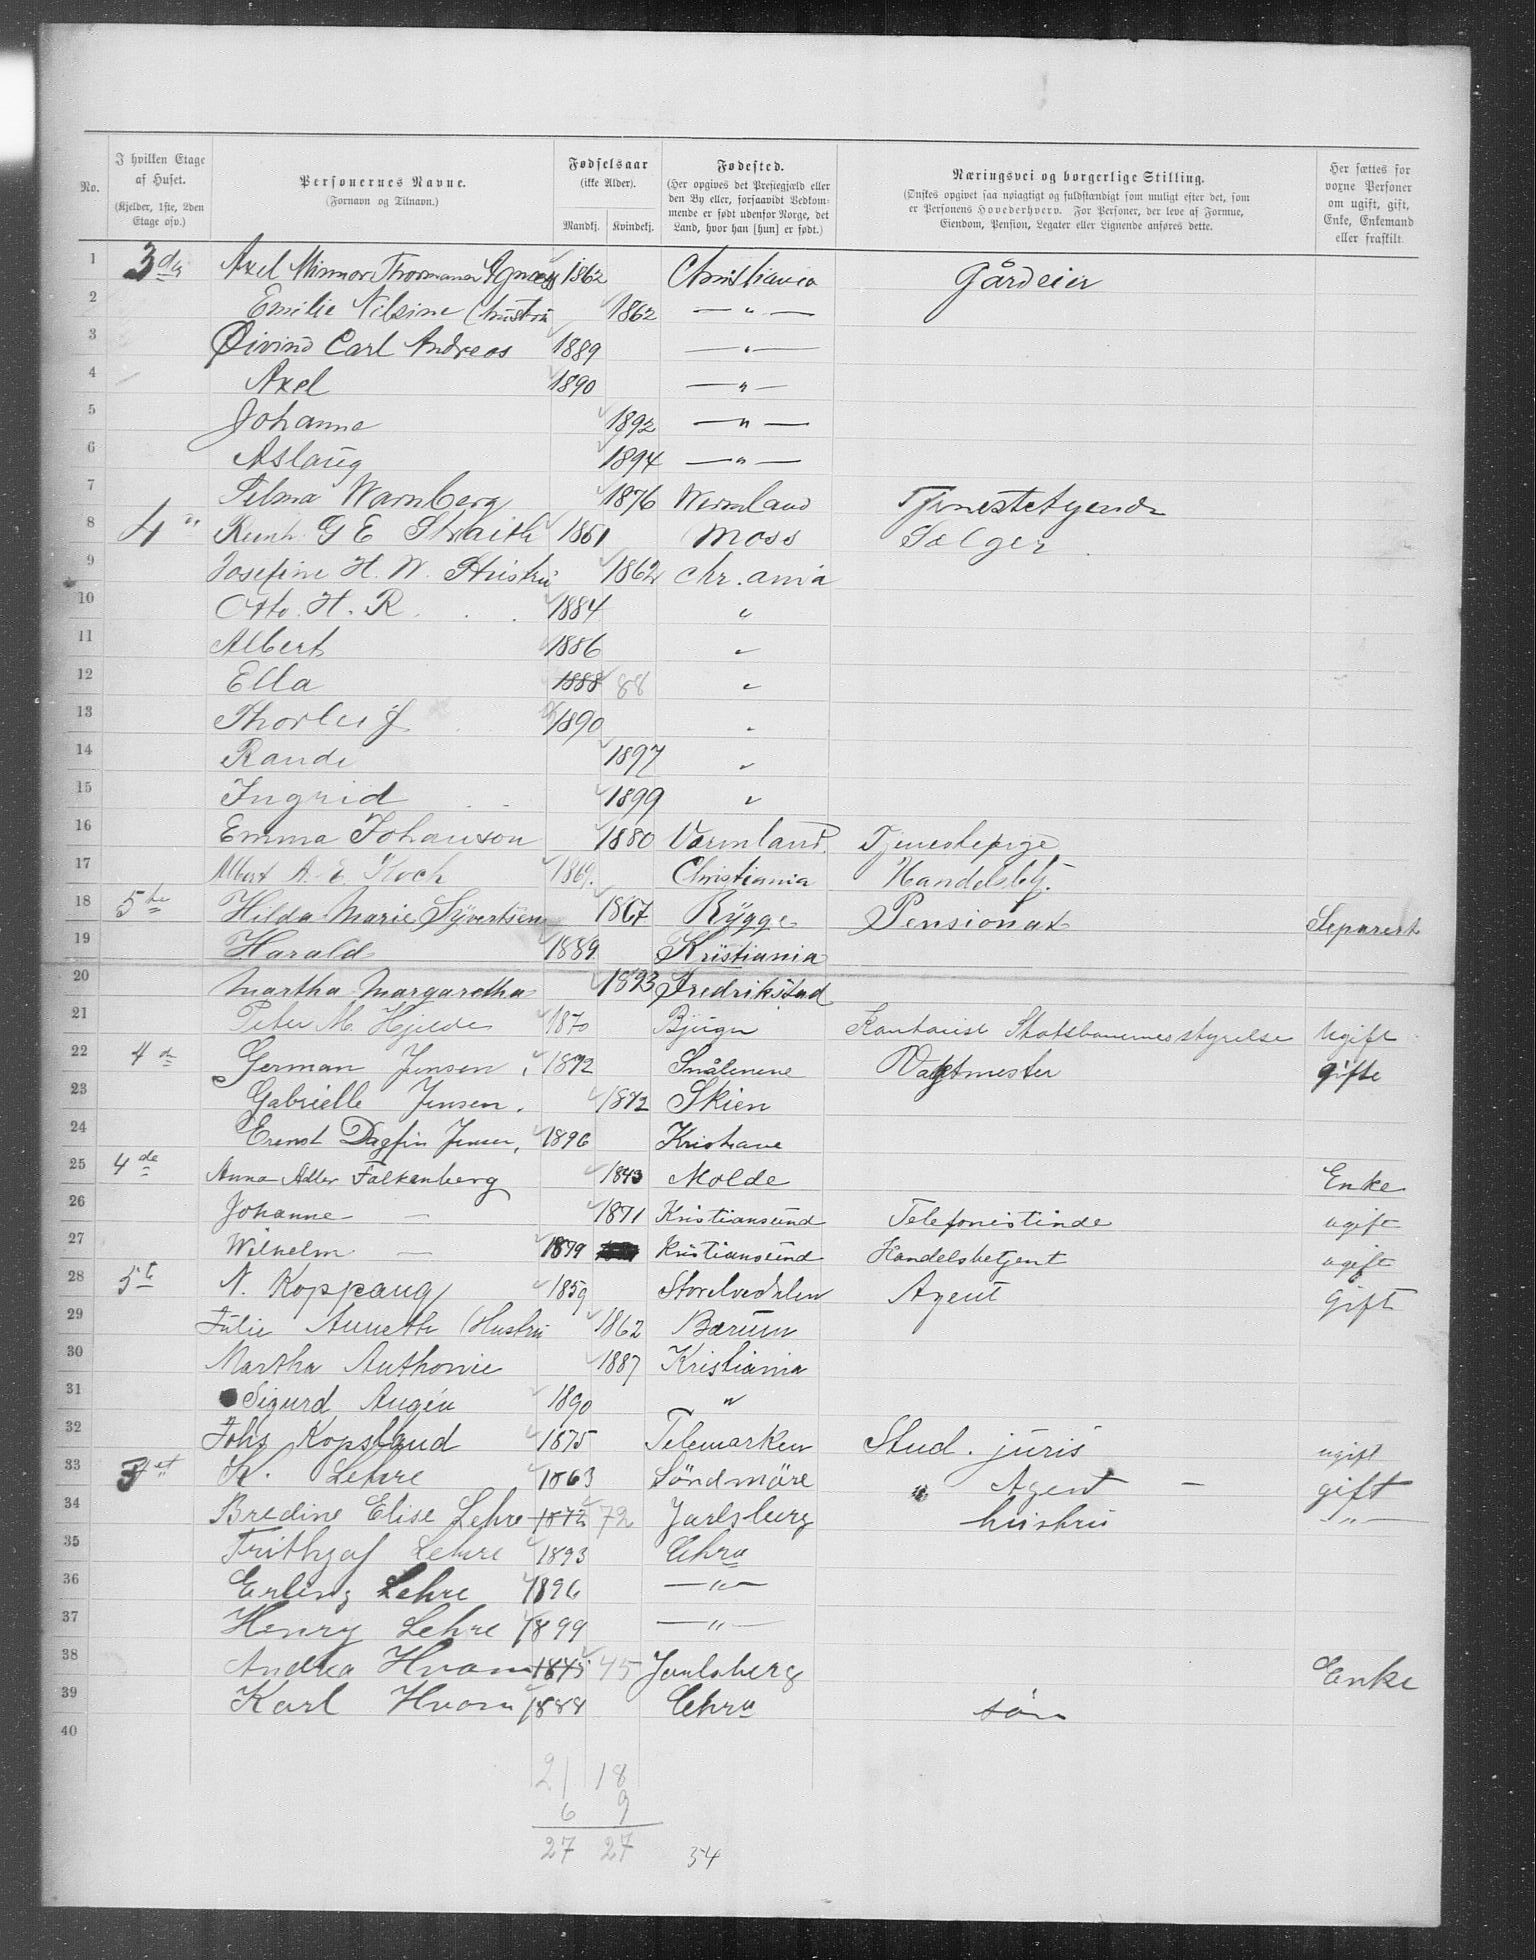 No.
I hvilken Etage af Huset.
(Kjelder, 1ste, 2den Etage osv.)
Personernes Navne.
(Fornavn og Tilnavn.)
Fødselsaar
(ikke Alder).
Mandkj. Kvindekj.
Fødested.
(Her opgives det Præstegjæld eller den By eller, forsaavidt Vedkommende er født udenfor Norge, det Land, hvor han [hun] er født.)
Næringsvei og borgerlige Stilling.
(Ønskes opgivet saa nøiagtigt og fuldstændigt som muligt efter det, som er Personens Hovederhverv. For Personer, der leve af Formue, Eiendom, Pension, Legater eller Lignende anføres dette.
Her sættes for voxne Personer om ugift, gift, Enke, Enkemand eller fraskilt.
1 3die Axel Minnor Thormann 1862 Christiania Gårdeier
2 Emilie Nilsine (hustru 1862 — " —
3 Øivind Carl Andreas 1889 — " —
4 Axel 1890 — " —
5 Johanne 1892 — " —
6 Aslaug 1894 — " —
7 Selma Warnberg 1876 Wermland Tjenestetyende
8 4 " G E 1861 Moss Sælger
9 Josefine H. W. Hustru 1862 Chr.ania
10 Otto H. R. 1884 "
11 Albert 1886 "
12 Ella 1888 88 "
13 Thorleif 1890 "
14 Randi 1897 "
15 Ingrid 1899 "
16 Emma Johanson 1880 Varmland. Tjenestepige
17 Albert A. E. Koch 1869. Christiania Handelsbtj.
18 5te Hilda Marie Syvertsen 1867 Rygge Pensionat Separert
19 Harald 1889 Kristiania
20 Martha Margaretha 1893 Fredrikstad
21 Peter M. Hjelde 1870 Bjugn Kontorist Statsbanernes styrelse Ugift
22 4de German Jensen, 1872 Smålenene Vagtmester gifte
23 Gabrielle Jensen. 1872 Skien
24 Ernst Dagfin Jensen, 1896 Kristiane
25 4de Anna Adler Falkenberg 1843 Molde Enke
26 Johanne — 1871 Kristiansund Telefonistinde ugift
27 Wilhelm — 1879 Kristiansund Handelsbetjent ugift
28 5te N. Koppang 1859 Storelvedalen Agent Gift
29 Julie Annette (Hustru 1862 Bærum
30 Martha Anthonie 1887 Kristiania
31 Sigurd Augén 1890 "
32 Johs Kopsland 1875 Telemarken Stud. juris ugift
33 K. Lehre 1863 Söndmöre " Agent — gift
34 Bredine Elise Lehre 1872 72 Jarlsberg hustru — " —
35 Frithjof Lehre 1893 Chra
36 Erling Lehre 1896 — " —
37 Henry Lehre 1899 — " —
38 Andrea Hvam 1845 45 Jarlsberg Enke
39 Karl Hvam 1888 Chra søn
40
21 18
6 9
27 27 54